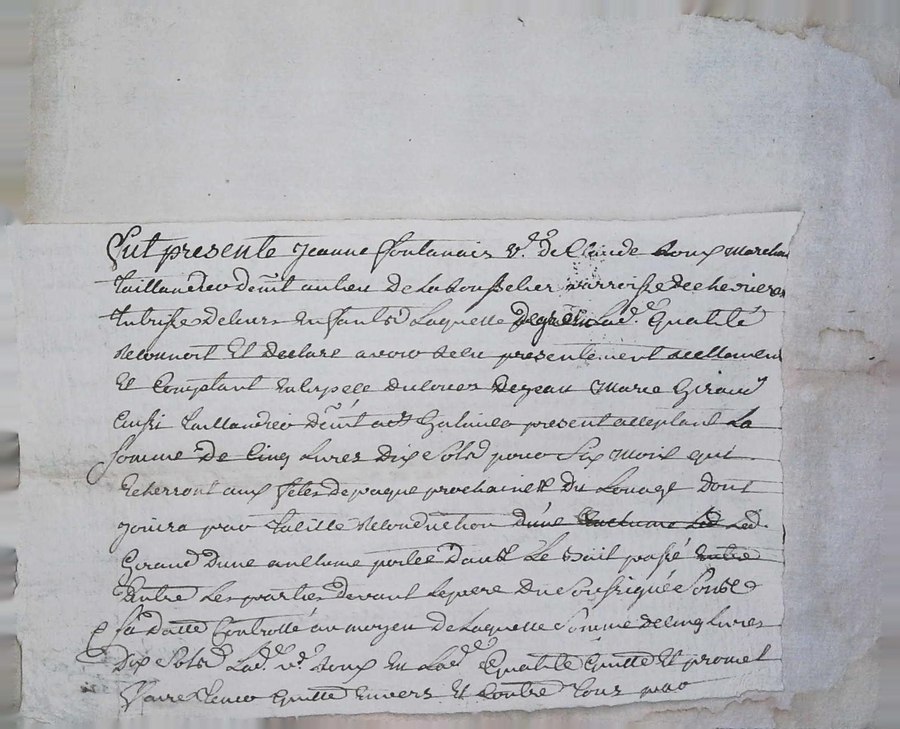 Fut presente Jeanne Fontanais v.e de Claude Roux marchan
taillandier demt au lieu de parroisse de chevrieres
tutrisse de leurs enfants Laquelle de gré en lad.e qualité
reconnoit et declare avoir reçu presentement reellement
et comptant en espece du cours de jean marie Giraud
aussi taillandier demt a st Galmier present acceptant la
somme de cinq livres dix sols pour six mois qui
echerront aux fetes de paque prochaines du Louage dont
jouira par tacitte reconduction d'une enclume led led.
Giraud d'une anclume portée dans le bail passé entre
entre les parties devant le pere du soussigné sous
sa datte controllé au moyen de laquelle somme de cinq livres
dix sols lad.e v.e Roux en lad.e qualité quitte et promet
faire tenir quitte envers et contre tous par